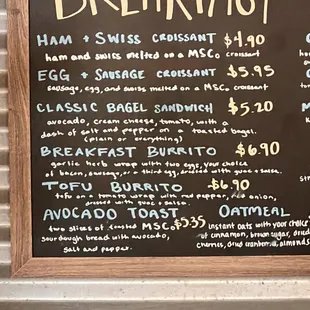 BREAKFAST
HAM + SWISS CROISSANT $4.90
ham and swiss melted on a MSCo croissant
EGG + SAUSAGE CROISSANT $5.95
sausage, egg, and swiss melted on a MSCo croissant
CLASSIC BAGEL SANDWICH $5.20
avocado, cream cheese, tomato, with a
dash of salt and pepper on a toasted bagel.
(plain or everything)
BREAKFAST BURRITO $6.90
garlic herb wrap with two egg, your choice
of bacon, sausage, or a third egg, dressed with guac + salsa.
TOFU BURRITO $6.90
tofu on a tomato wrap with red pepper, red onion,
dressed with guac + salsa.
AVOCADO TOAST $5.35
two slices of toasted MSCo
sourdough bread with avocado,
salt and pepper.
OATMEAL
instant oats with your choice
of cinnamon, brown sugar, dried
cherries, dried cranberries, almonds